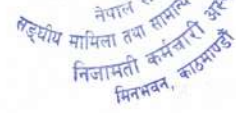 नेपाल
सङ्घीय मामिला तथा सामान्य
निजामती कर्मचारी अस्
मिनभवन, काठमाण्डौ